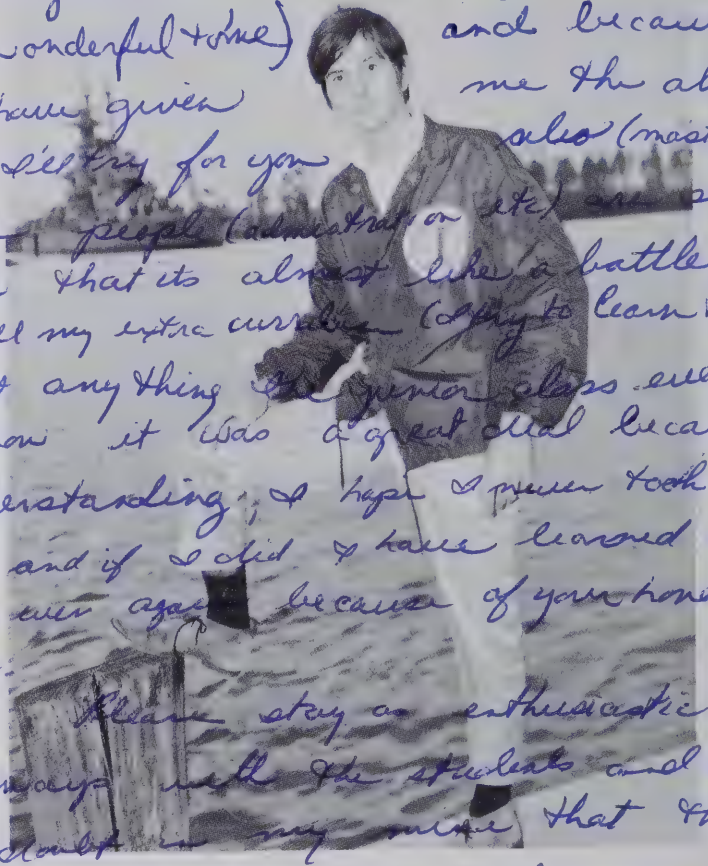 wonderful time) and becau
have given me the ab
I'll try for you also (mos
people (admistration etc) are s
that its almost like a battle
my extra curriculum (I try to learn
any thing the junior class eve
ow it was a great deal beca
erstanding, I hope I never took
and if I did I have learned
ever again because of your hone
Please stay as enthusiastic
ways with the students and
doubt in my mind that